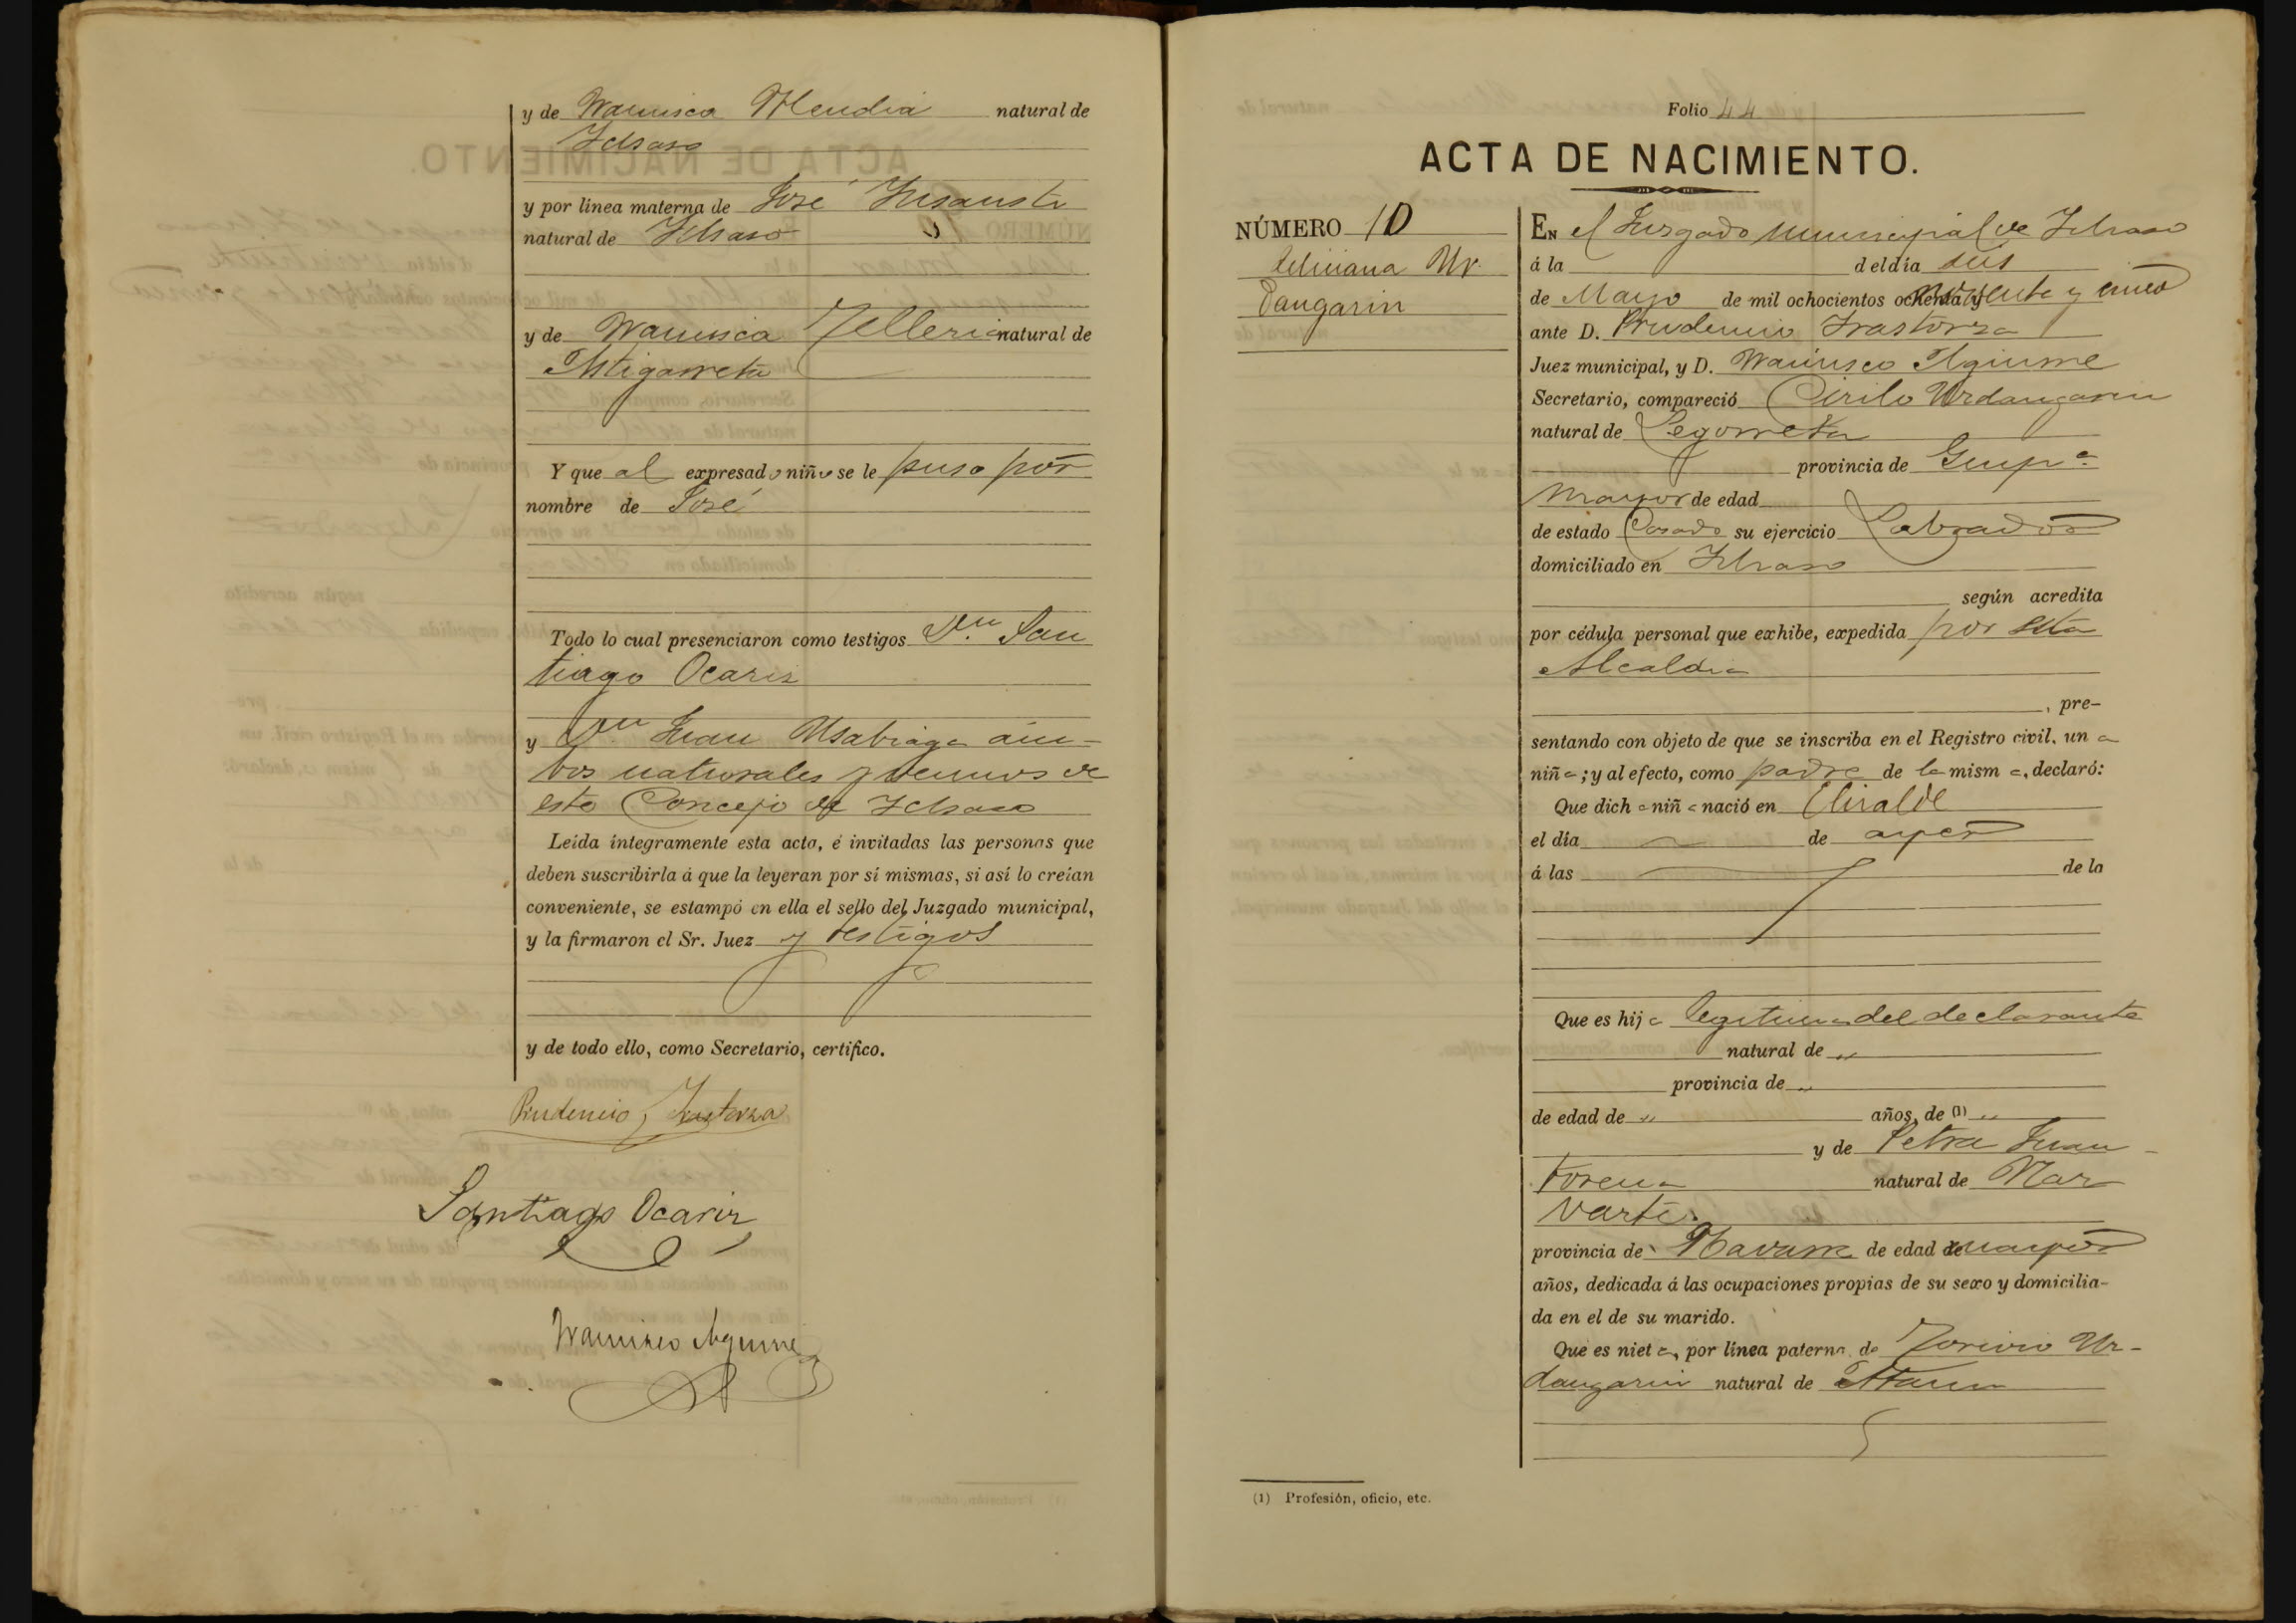 y de Francisca Mendia natural de
Ichaso
y por línea materna de José Insausti
natural de Ichaso
y de Francisca Telleria natural de
Astigarreta
Y que al expresado niño se le puso por
nombre de José
Todo lo cual presenciaron como testigos Dn. San
tiago Ocariz
y Dn. Juan Usabiaga am-
bos naturales y vecinos de
este Concejo de Ichaso
Leída íntegramente esta acta, é invitadas las personas que
deben suscribirla á que la leyeran por sí mismas, si así lo creían
conveniente, se estampó en ella el sello del Juzgado municipal,
y la firmaron el Sr. Juez y testigos
y de todo ello, como Secretario, certifico.
Prudencio Irastorza
Santiago Ocariz
Francisco Aguirre
Folio 44
ACTA DE NACIMIENTO.
NÚMERO 10
Feliciana Ur
dangarin
EN el Juzgado municipal de Ichaso
á la del día seis
de Mayo de mil ochocientos noventa y cinco
ante D. Prudencio Irastorza
Juez municipal, y D. Francisco Aguirre
Secretario, compareció Cirilo Urdangarin
natural de Legorreta
provincia de Guipa.
mayor de edad
de estado Casado su ejercicio Labrador
domiciliado en Ichaso
según acredita
por cédula personal que exhibe, expedida por esta
Alcaldia
, pre-
sentando con objeto de que se inscriba en el Registro civil, una
niña; y al efecto, como padre de la misma, declaró:
Que dicha niña nació en
el día de ayer
á las de la
Que es hija legitima del declarante
natural de "
provincia de "
de edad de " años, de (1) "
y de Petra Juan
torena natural de Nar
varte.
provincia de Navarra de edad de mayor
años, dedicada á las ocupaciones propias de su sexo y domicilia-
da en el de su marido.
Que es nieta, por línea paterna de Ur-
dangarin natural de
(1) Profesión, oficio, etc.